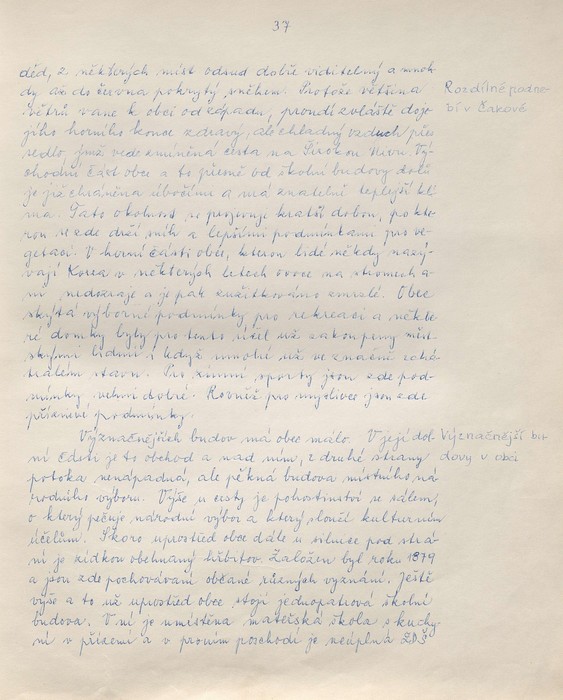 37
děd, z některých míst odsud dobře viditelný a mnoh-
dy až do června pokrytý sněhem. Protože většina
větrů vane k obci od západu, proudí zvláště do je-
jího horního konce zdravý, ale chladný vzduch přes
sedlo, jímž vede zmíněná cesta na Širokou Nivu. Vý-
chodní část obce a to přesně od školní budovy dolů
je již chráněna úbočími a má znatelně teplejší kli-
ma. Tato okolnost se projevuje kratší dobou, po kte-
rou se zde drží sníh a lepšími podmínkami pro ve-
getaci. V horní části obce, kterou lidé někdy nazý-
vají Korea v některých letech ovoce na stromech a-
ni nedozraje a je pak zužitkováno zmrzlé. Obec
skýtá výborné podmínky pro rekreaci a někte-
ré domky byly pro tento účel už zakoupeny měst-
skými lidmi i když mnohé už ve značně zchá-
tralém stavu. Pro zimní sporty jsou zde pod-
mínky velmi dobré. Rovněž pro myslivce jsou zde
příznivé podmínky.
Rozdílné podne-
bí v Čakové
Význačnějších budov má obec málo. V její dol-
ní části je to obchod a nad ním, z druhé strany
potoka nenápadná, ale pěkná budova místního ná-
rodního výboru. Výše u cesty je pohostinství se sálem,
o který pečuje národní výbor a který slouží kulturním
účelům. Skoro uprostřed obce dále u silnice pod strá-
ní je zídkou obehnaný hřbitov. Založen byl roku 1879
a jsou zde pochováváni občané různých vyznání. Ještě
výše a to už uprostřed obce stojí jednopatrová školní
budova. V ní je umístěna mateřská škola s kuchy-
ní v přízemí a v prvním poschodí je neúplná ZDŠ
Význačnější bu-
dovy v obci